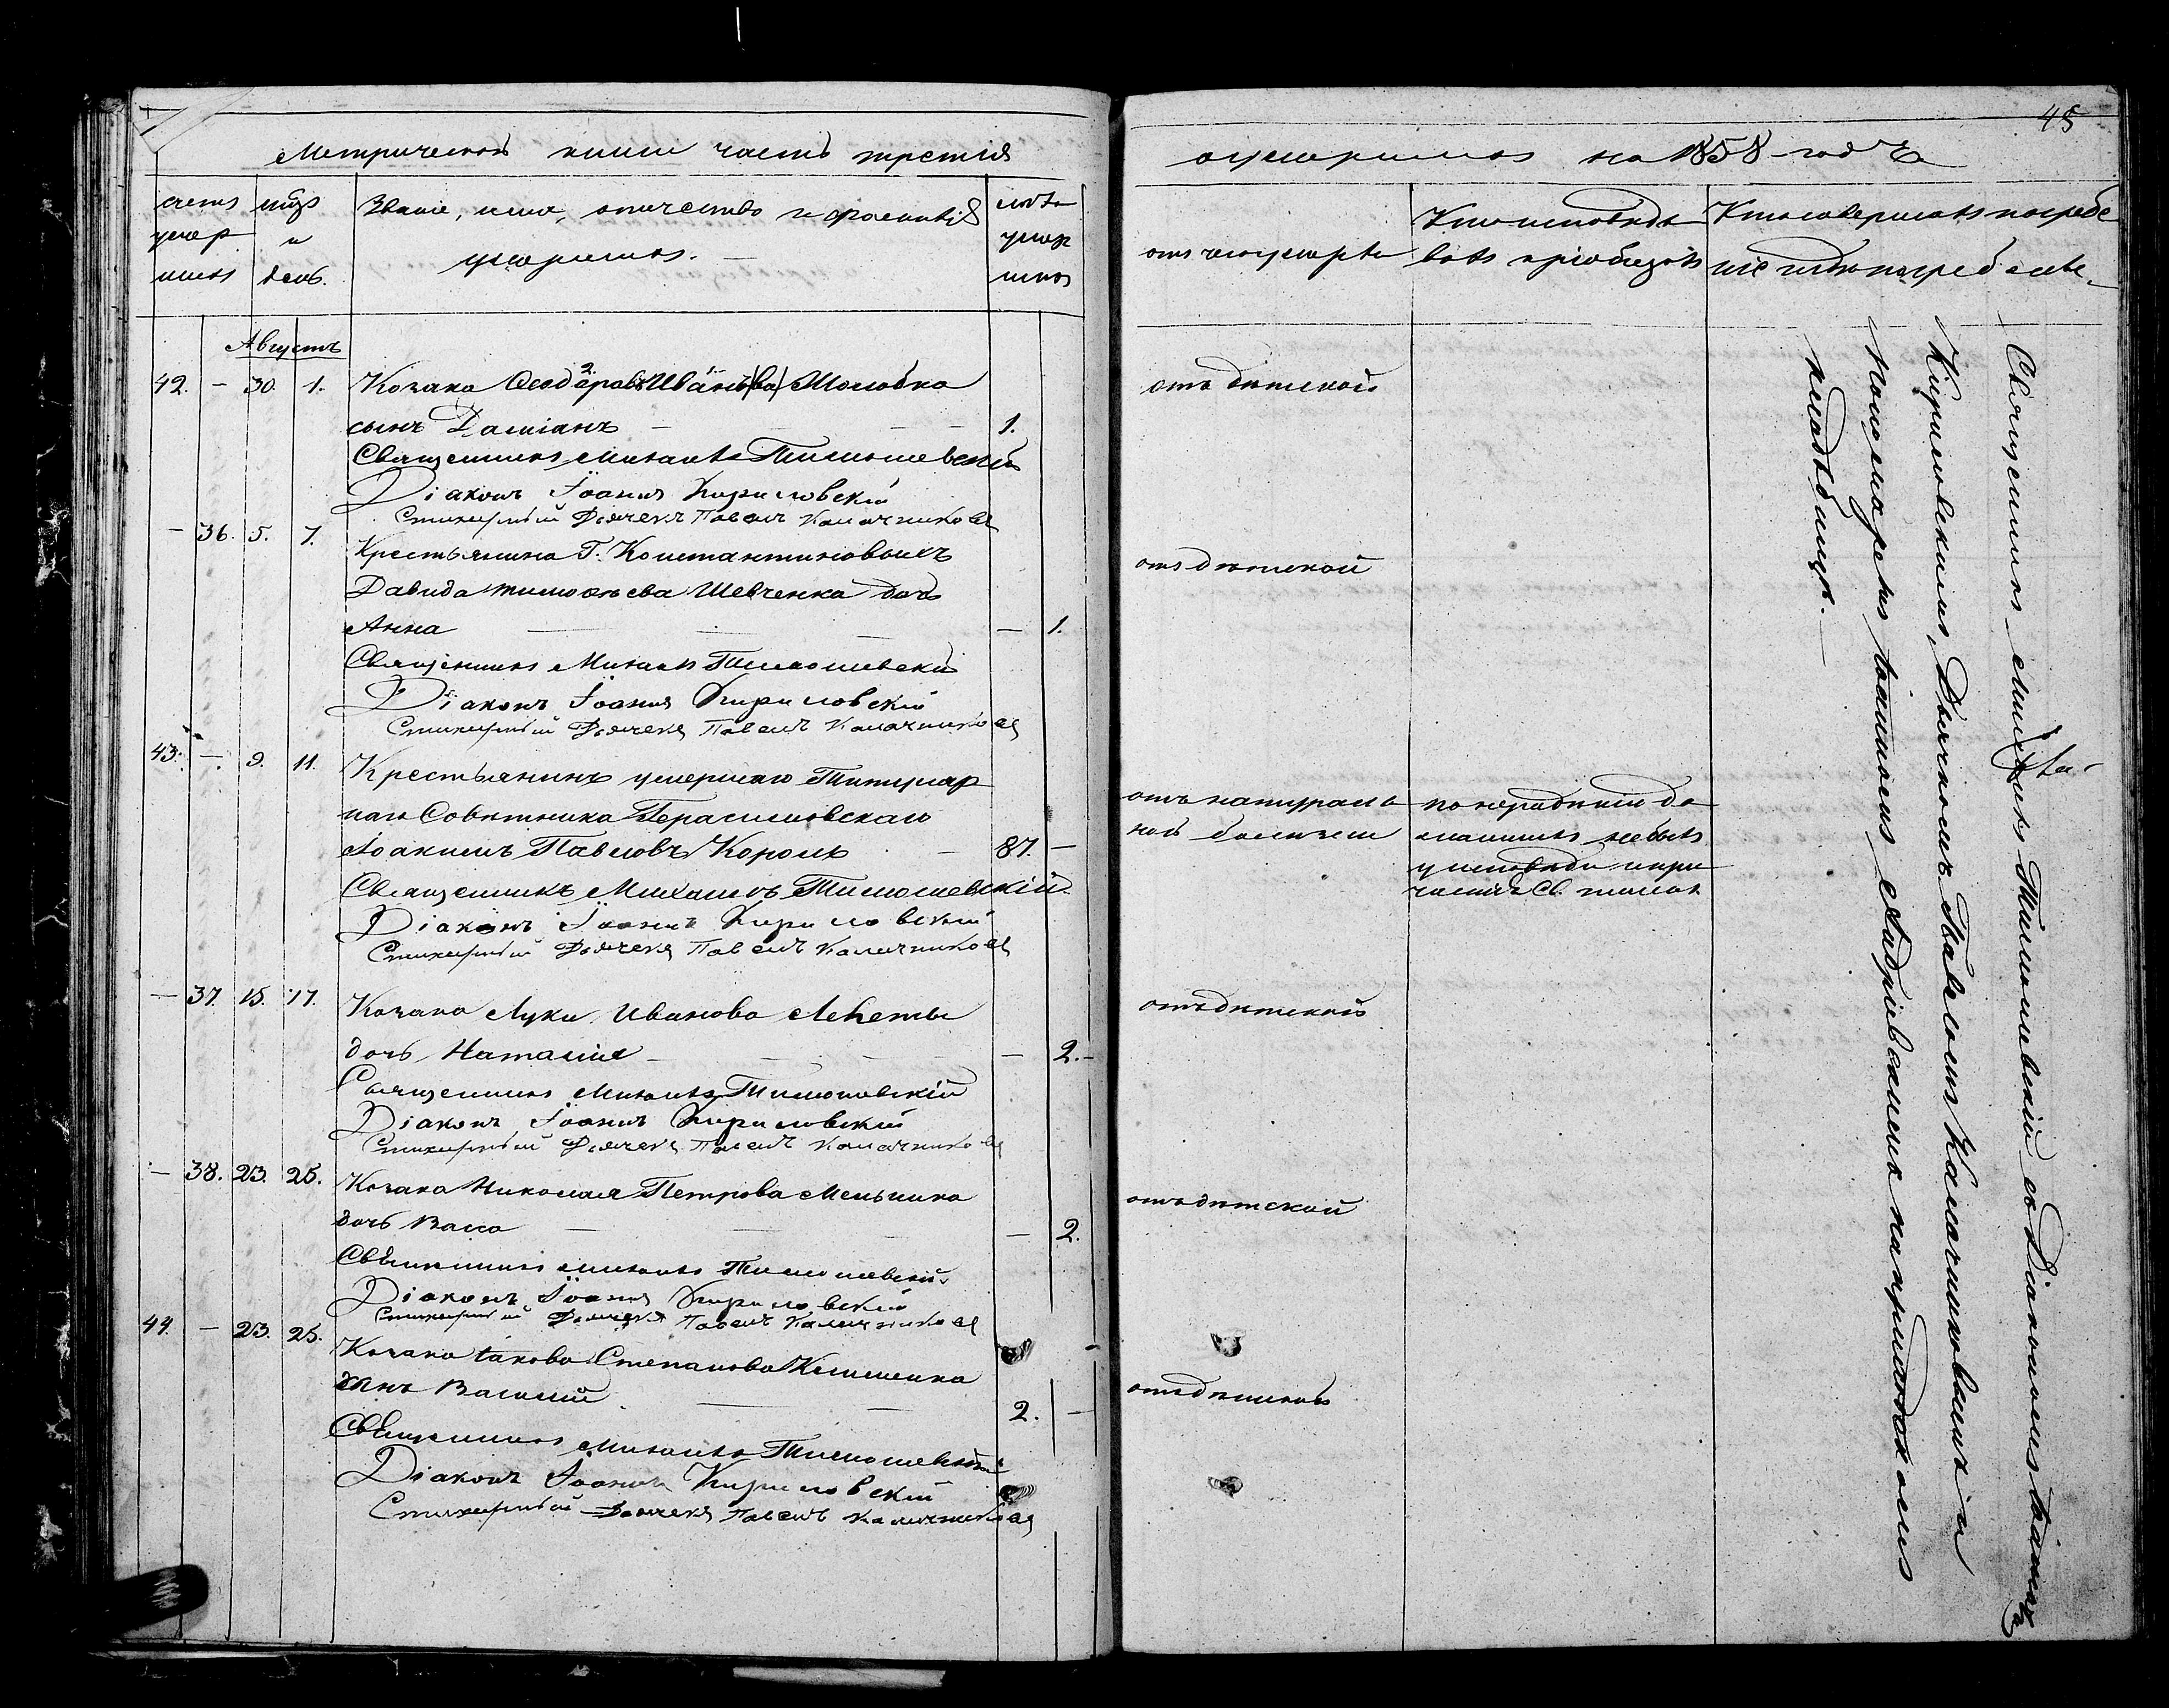 Метрической книги часть третія
счетъ умер шихъ
мцъ и день.
Званіе, имя, отчество и фамилія умершихъ. —
лѣта умер шихъ
Августъ
42. — 30. 1. Козака Ѳеодорова Иванова Молобка
сынъ Даміанъ — — — 1.
Священникъ Михаилъ Тимошевскій
Діаконъ Іоаннъ Кириловскій
Стихарный Дьячекъ Павелъ Калачниковъ
— 36. 5. 7.
Крестьянина Г. Константиновыхъ
Давида Тимоѳѣева Шевченка дочь
Анна — — — — 1.
Священникъ Михаилъ Тимошевскій
Діаконъ Іоаннъ Кириловскій
Стихарный Дьячекъ Павелъ Калачниковъ
43. —. 9. 11. Крестьянинъ умершаго Титуляр
наго Совѣтника Герасимовскаго
Іоакимъ Павловъ Король — 87. —
Священникъ Михаилъ Тимошевскій
Діаконъ Іоаннъ Кириловскій
Стихарный Дьячекъ Павелъ Калачниковъ
— 37. 15. 17. Козака Луки Иванова Лепеты
дочь Наталія — — — — 2. —
Священникъ Михаилъ Тимошевскій
Діаконъ Іоаннъ Кириловскій
Стихарный Дьячекъ Павелъ Калачниковъ
— 38. 23. 25. Козака Николая Петрова Мельника
дочь Васса — — — 2.
Священникъ Михаилъ Тимошевскій
Діаконъ Іоаннъ Кириловскій
Стихарный Дьячекъ Павелъ Калачниковъ
44. — 23. 25. Козака Іакова Степанова Клименка
сынъ Василій — — 2. —
Священникъ Михаилъ Тимошевскій
Діаконъ Іоаннъ Кириловскій
Стихарный Дьячекъ Павелъ Калачниковъ
45
о умершихъ на 1858 годъ
отъ чего умеръ
Кто исповѣды валъ и пріобщалъ
Кто совершалъ погребе ніе и гдѣ погребены
отъ дѣтской
отъ дѣтской
отъ натураль
ной болѣзни
по нерадѣнію до
машнихъ не былъ
у исповѣди и при
частія Св. таинъ
отъ дѣтской
отъ дѣтской
отъ дѣтской
Священникъ Михаилъ Тимошевскій съ Діакономъ Іоанномъ
Кириловскимъ, Дьячкомъ Павломъ Калачниковымъ и
Пономаремъ Іоанномъ Андріевскимъ на приходскомъ
кладбищѣ. —